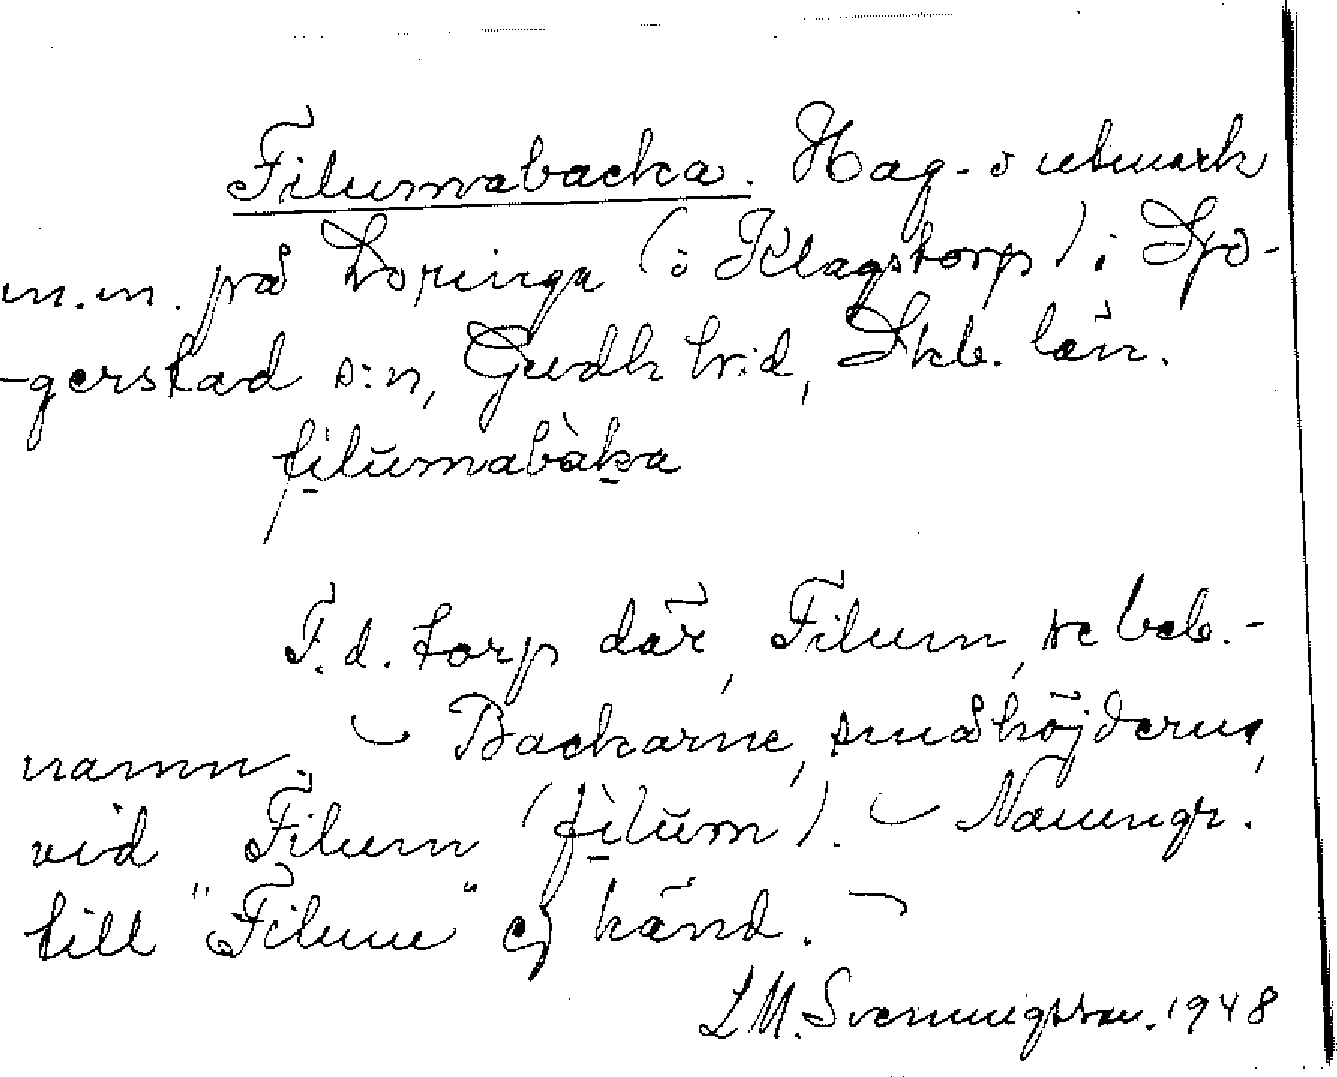 Filumabacka. Hag- o utmark
m.m. på Loringa (ö Klagstorp) i Sjö-
-gerstad s:n, Gudh h:d, Skb. län.
filŭmabàka
F.d. torp där, Filum, se beb.-
namn. Backarne, småhöjderna,
vid Filum (fìlŭm). Namngr.
till "Filum" ej känd.
L M. Svenningsson. 1948